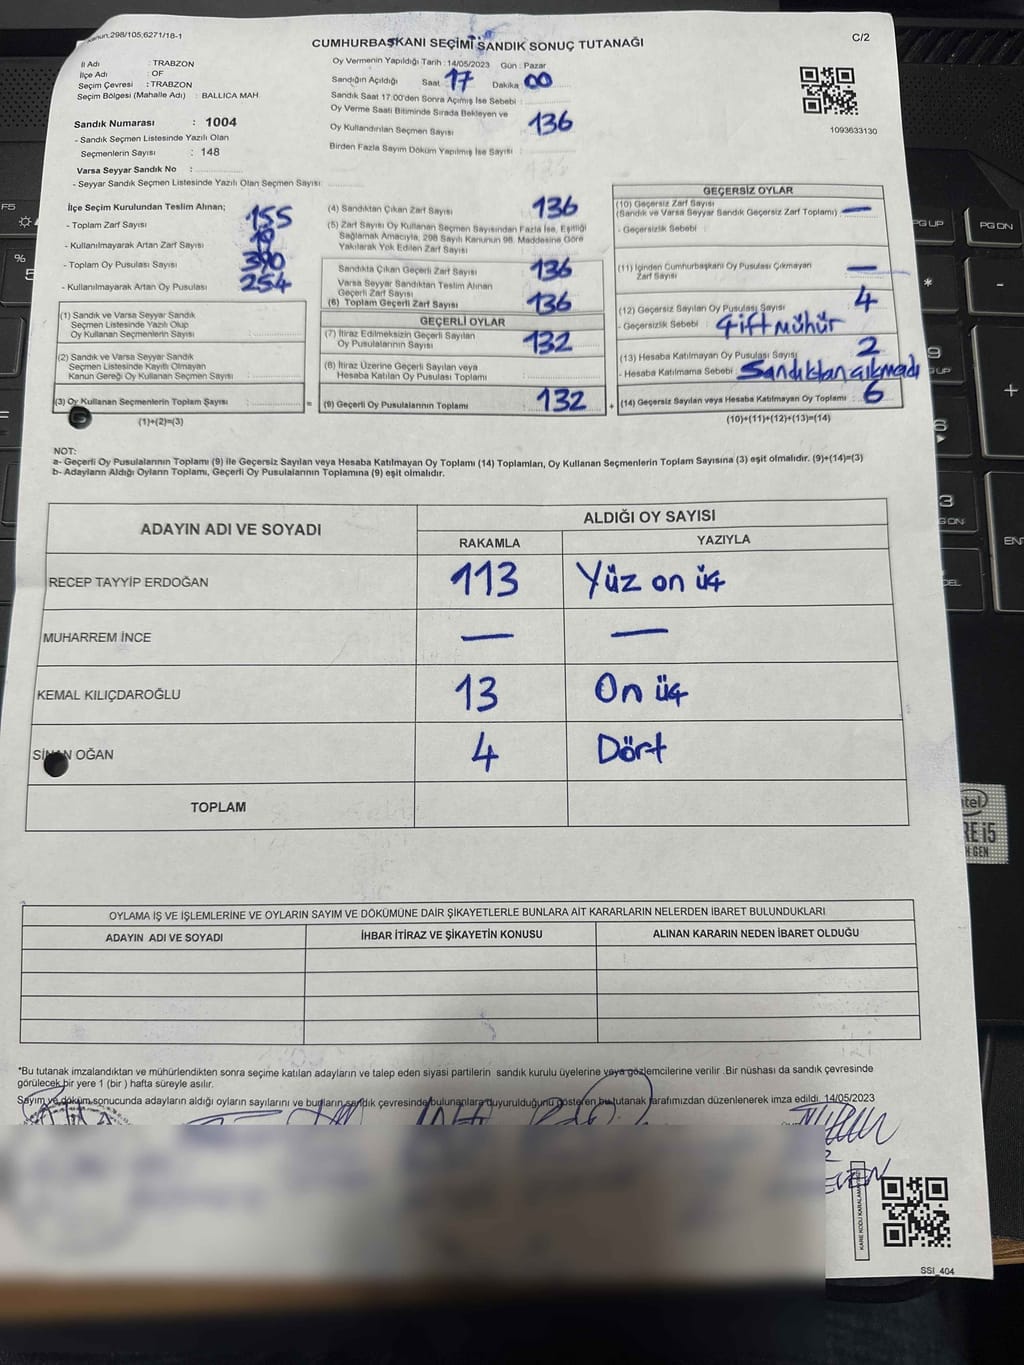 Kanun:298/105;6271/18-1
CUMHURBAŞKANI SEÇİMİ SANDIK SONUÇ TUTANAĞI
C/2
İl Adı : TRABZON
İlçe Adı : OF
Seçim Çevresi : TRABZON
Seçim Bölgesi (Mahalle Adı) : BALLICA MAH.
Sandık Numarası : 1004
- Sandık Seçmen Listesinde Yazılı Olan
Seçmenlerin Sayısı : 148
Varsa Seyyar Sandık No :
- Seyyar Sandık Seçmen Listesinde Yazılı Olan Seçmen Sayısı:
Oy Vermenin Yapıldığı Tarih : 14/05/2023 Gün : Pazar
Sandığın Açıldığı Saat 17 Dakika 00
Sandık Saat 17.00'den Sonra Açımış İse Sebebi :
Oy Verme Saati Bitiminde Sırada Bekleyen ve
Oy Kullandırılan Seçmen Sayısı 136
Birden Fazla Sayım Döküm Yapılmış İse Sayısı :
1093633130
İlçe Seçim Kurulundan Teslim Alınan;
- Toplam Zarf Sayısı 155
- Kullanılmayarak Artan Zarf Sayısı 19
- Toplam Oy Pusulası Sayısı 390
- Kullanılmayarak Artan Oy Pusulası 254
(1) Sandık ve Varsa Seyyar Sandık
Seçmen Listesinde Yazılı Olup
Oy Kullanan Seçmenlerin Sayısı
(2) Sandık ve Varsa Seyyar Sandık
Seçmen Listesinde Kayıtlı Olmayan
Kanun Gereği Oy Kullanan Seçmen Sayısı
(3) Oy Kullanan Seçmenlerin Toplam Sayısı =
(1)+(2)=(3)
(4) Sandıktan Çıkan Zarf Sayısı 136
(5) Zarf Sayısı Oy Kullanan Seçmen Sayısından Fazla İse, Eşitliği
Sağlamak Amacıyla, 298 Sayılı Kanunun 98. Maddesine Göre
Yakılarak Yok Edilen Zarf Sayısı
Sandıkta Çıkan Geçerli Zarf Sayısı 136
Varsa Seyyar Sandıktan Teslim Alınan
Geçerli Zarf Sayısı
(6) Toplam Geçerli Zarf Sayısı 136
GEÇERLİ OYLAR
(7) İtiraz Edilmeksizin Geçerli Sayılan
Oy Pusulalarının Sayısı 132
(8) İtiraz Üzerine Geçerli Sayılan veya
Hesaba Katılan Oy Pusulası Toplamı
(9) Geçerli Oy Pusulalarının Toplamı 132 +
GEÇERSİZ OYLAR
(10) Geçersiz Zarf Sayısı
(Sandık ve Varsa Seyyar Sandık Geçersiz Zarf Toplamı) —
- Geçersizlik Sebebi :
(11) İçinden Cumhurbaşkanı Oy Pusulası Çıkmayan
Zarf Sayısı —
(12) Geçersiz Sayılan Oy Pusulası Sayısı 4
- Geçersizlik Sebebi : Çift mühür
(13) Hesaba Katılmayan Oy Pusulası Sayısı 2
- Hesaba Katılmama Sebebi : Sandıktan çıkmadı
(14) Geçersiz Sayılan veya Hesaba Katılmayan Oy Toplamı : 6
(10)+(11)+(12)+(13)=(14)
NOT:
a- Geçerli Oy Pusulalarının Toplamı (9) ile Geçersiz Sayılan veya Hesaba Katılmayan Oy Toplamı (14) Toplamları, Oy Kullanan Seçmenlerin Toplam Sayısına (3) eşit olmalıdır. (9)+(14)=(3)
b- Adayların Aldığı Oyların Toplamı, Geçerli Oy Pusulalarının Toplamına (9) eşit olmalıdır.
ADAYIN ADI VE SOYADI ALDIĞI OY SAYISI
RAKAMLA YAZIYLA
RECEP TAYYİP ERDOĞAN 113 Yüz on üç
MUHARREM İNCE — —
KEMAL KILIÇDAROĞLU 13 On üç
SİNAN OĞAN 4 Dört
TOPLAM
OYLAMA İŞ VE İŞLEMLERİNE VE OYLARIN SAYIM VE DÖKÜMÜNE DAİR ŞİKAYETLERLE BUNLARA AİT KARARLARIN NELERDEN İBARET BULUNDUKLARI
ADAYIN ADI VE SOYADI İHBAR İTİRAZ VE ŞİKAYETİN KONUSU ALINAN KARARIN NEDEN İBARET OLDUĞU
*Bu tutanak imzalandıktan ve mühürlendikten sonra seçime katılan adayların ve talep eden siyasi partilerin sandık kurulu üyelerine veya gözlemcilerine verilir .Bir nüshası da sandık çevresinde
görülecek bir yere 1 (bir ) hafta süreyle asılır.
Sayım ve döküm sonucunda adayların aldığı oyların sayılarını ve bunların sandık çevresinde bulunanlara duyurulduğunu gösteren bu tutanak tarafımızdan düzenlenerek imza edildi. 14/05/2023
SSI_404
F5
%
5
PG UP
PG DN
*
-
9
+
6
3
intel
CORE i5